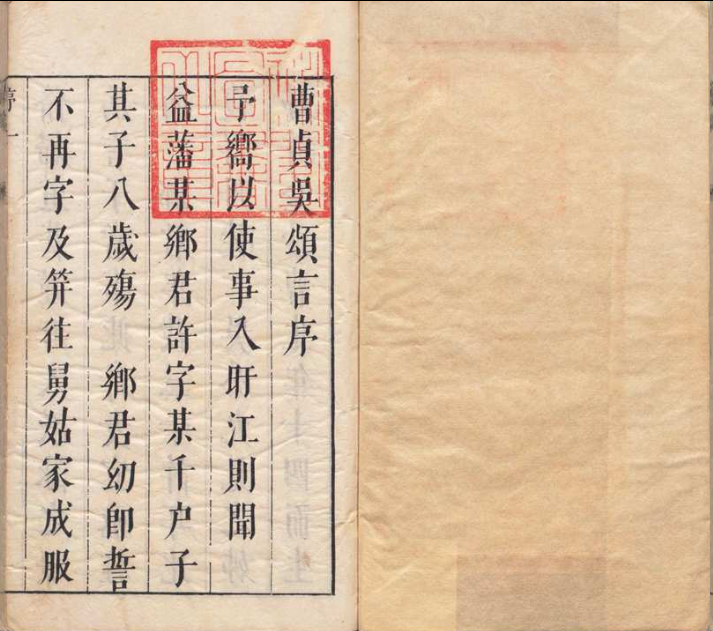 曹貞吳頌言序
予嚮以使事入盱江則聞
益藩某鄉君許字某千户子
其子八歲殤　鄉君幼卽誓
不再字及笄往舅姑家成服
序　一